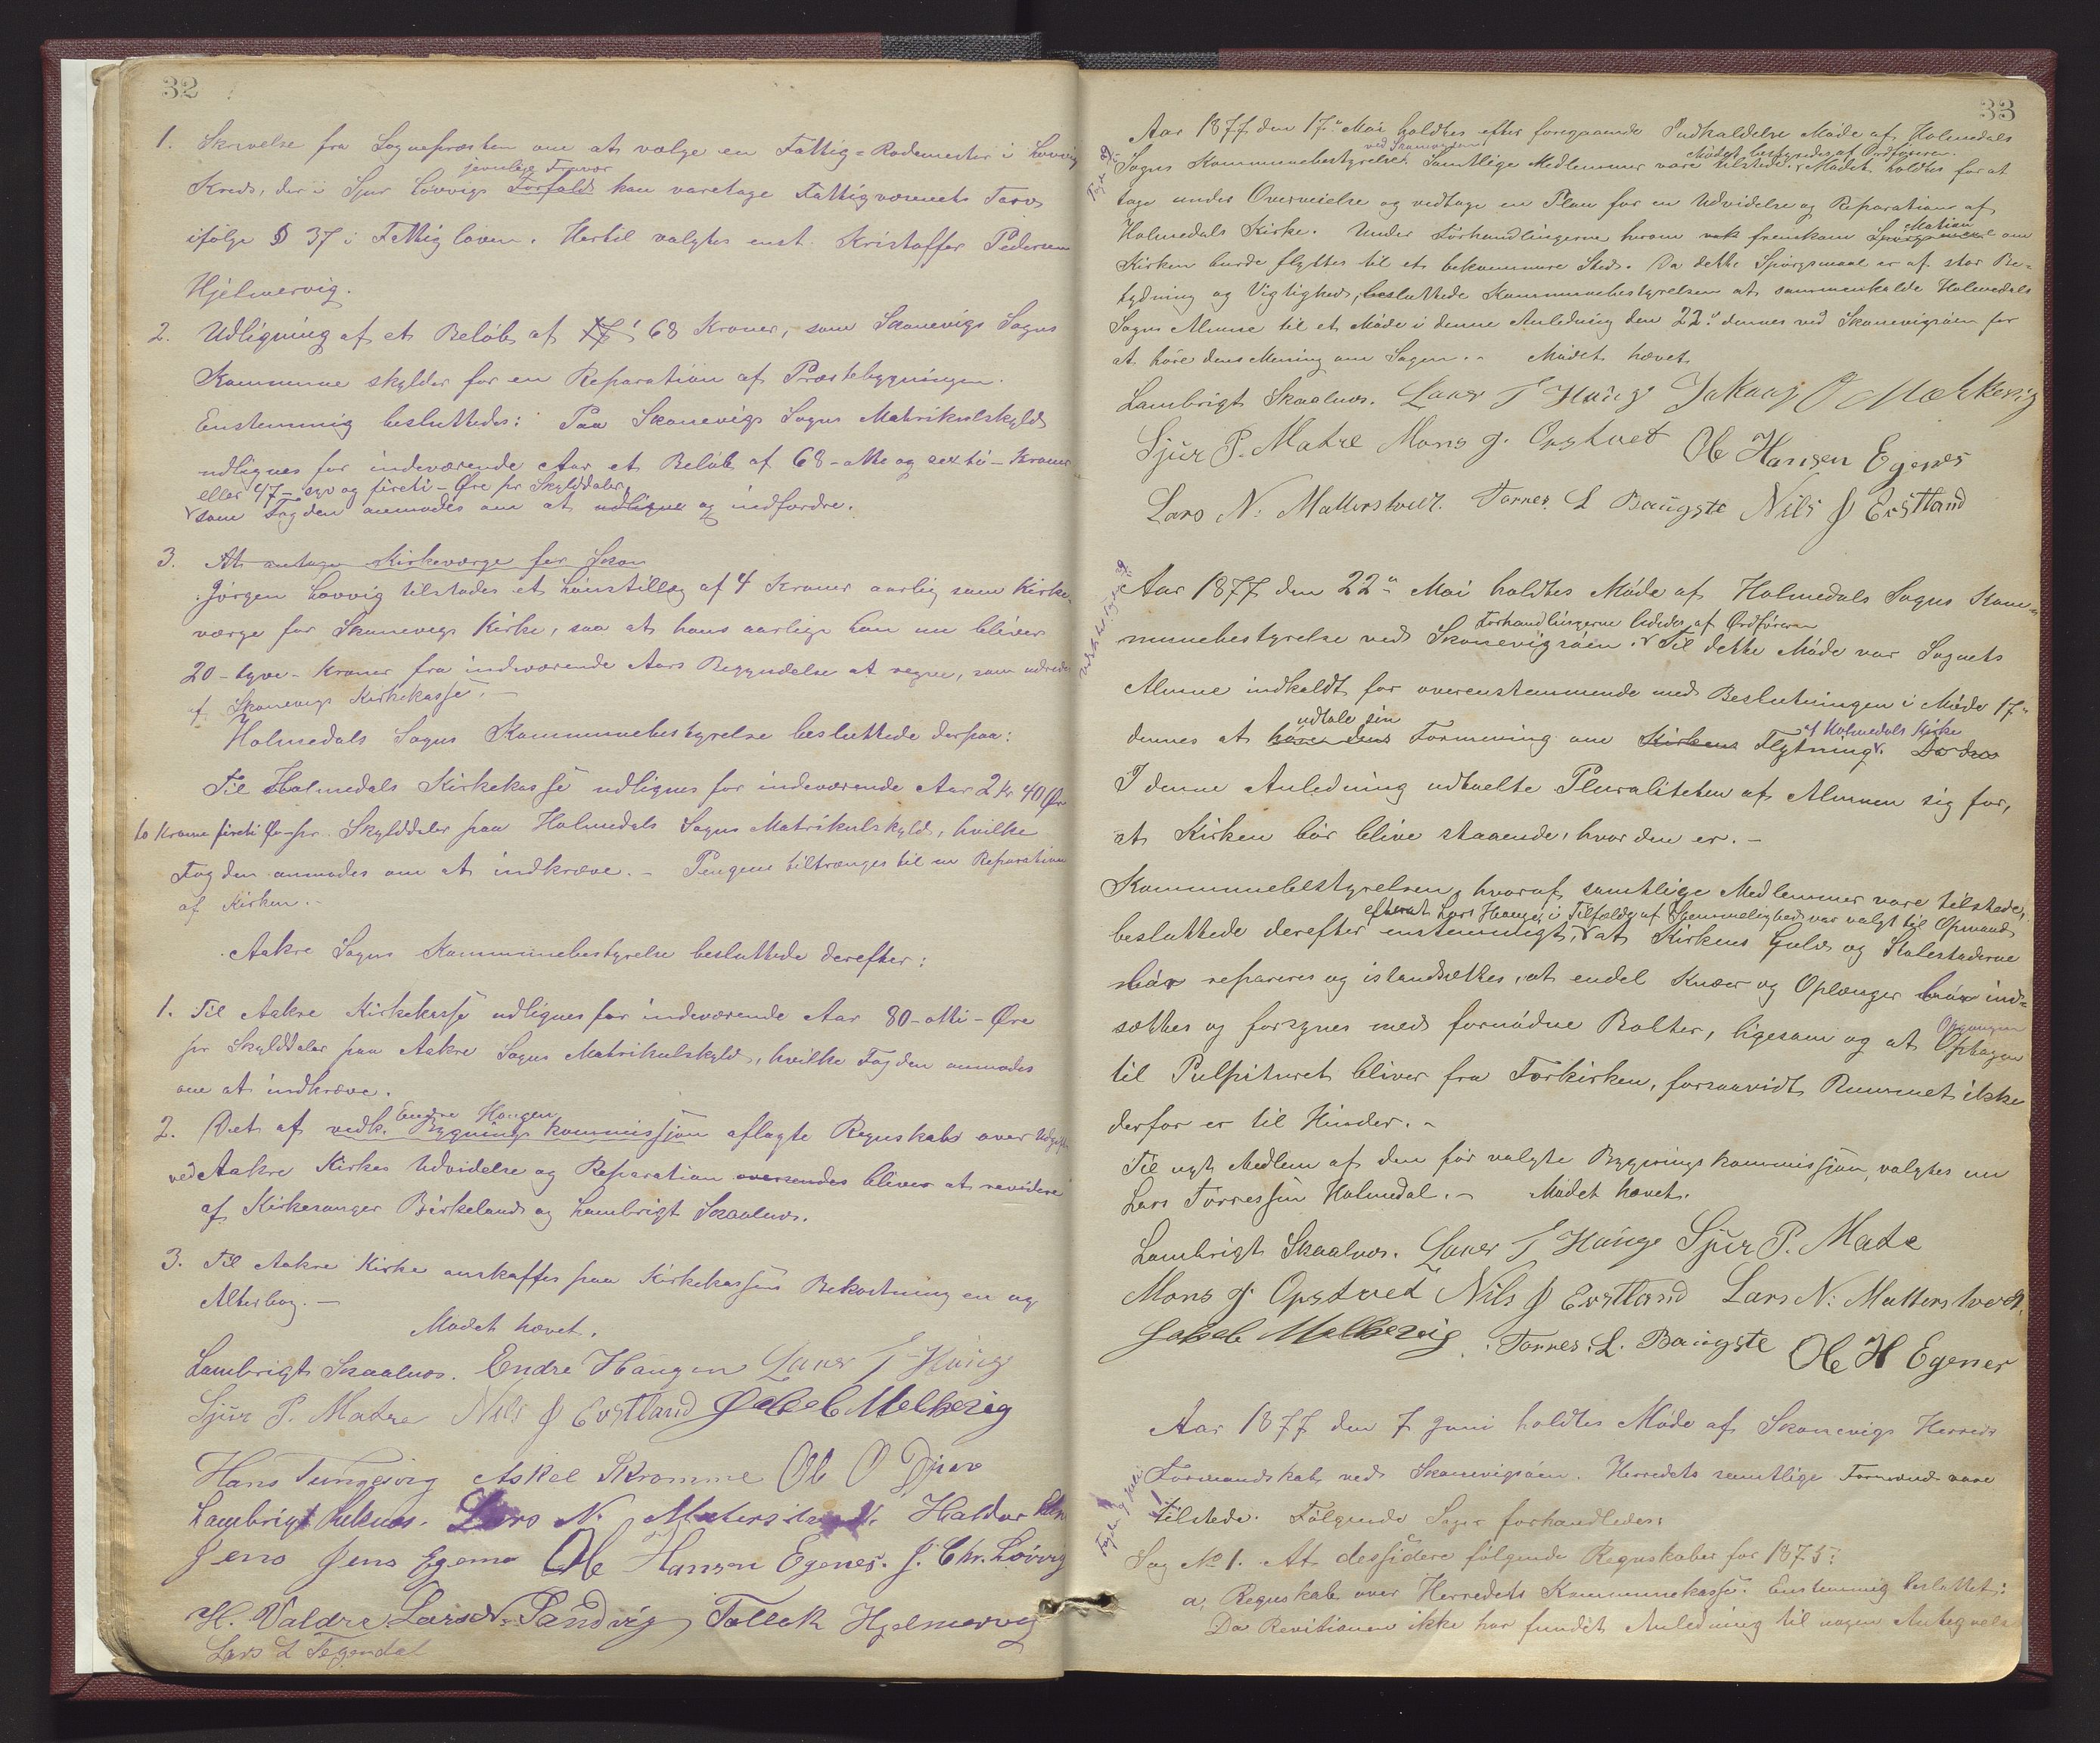 32
1. Skrivelse fra Sognepræsten om at vælge en Fattig-Rodemester i Lovvig
jevnlige Fravær
Kreds, der i Sjur Lovvigs Forfald kan varetage Fattigvæsenets Tarv
ifølge § 37 i Fattigloven. Hertil valgtes enst. Kristoffer Pedersen
Hjelmervig.
2. Udligning af et Beløb af 68 Kroner, som Skonevigs Sogns
Kommune skylder for en Reparation af Præstebygningen.
Enstemmig besluttedes: Paa Skonevigs Sogns Matrikulskyld
udlignes for indeværende Aar et Beløb af 68 - otte og sexti - Kroner
eller 47 - syv og føreti - Øre pr Skylddaler,
som Fogden anmodes om at udligne og indfordre.
3. At antage Kirkeværge for Skon
Jørgen Lovvig tilstodes et Lønstillæg af 4 Kroner aarlig som Kirke-
værge for Skonevigs Kirke, saa at hans aarlige Løn nu bliver
20 - tyve - Kroner fra indeværende Aars Begyndelse at regne, som udredes
af Skonevigs Kirkekasse. -
Holmedals Sogns Kommunebestyrelse besluttede derpaa:
Til Holmedals Kirkekasse udlignes for indeværende Aar 2 Kr 40 Øre
to Krone føreti Øre pr. Skylddaler paa Holmedals Sogns Matrikulskyld, hvilke
Fogden anmodes om at indkræve. - Pengene tiltrænges til en Reparation
af Kirken. -
Aakre Sogns Kommunebestyrelse besluttede derefter:
1. Til Aakre Kirkekasse udlignes for indeværende Aar 80 - otti - Øre
pr Skylddaler paa Aakre Sogns Matrikulskyld, hvilke Fogden anmodes
om at indkræve.
Endre Haugen
2. Det af vedk. Bygningskommissjon aflagte Regnskab over Udgifter
ved Aakre Kirkes Udvidelse og Reparation oversendes bliver at revidere
af Kirkesanger Birkeland og Lambrigt Skaalnes.
3. Til Aakre Kirke anskaffes paa Kirkekassens Bekostning en ny
Alterbog. -
Mødet hævet.
Lambrigt Skaalnes. Endre Haugen Lars T Hauge
Sjur P. Matre Nils J Østland Jakob Melkevig
Hans Tungesvig Askel Skromme Ole O Djuv
Lambrigt Lars N. Mattersteedt. Haldor
Jens Jens Egenes Ole Hansen Egenes. J. Chr. Lovvig
H. Valdre Lars N. Sandvig Tollak Hjelmervig
Lars L Tegendal
33
Aar 1877 den 17de Mai holdtes efter foregaaende Indkaldelse Møde af Holmedals
ved Skonevigsøen Mødet bestyredes af Ordføreren
Sogns Kommunebestyrelse. Samtlige Medlemmer vare tilstede. Mødet holdtes for at
tage under Overveielse og vedtage en Plan for en Udvidelse og Reparation af
Motion
Holmedals Kirke. Under Forhandlingerne herom fremkom Spørgsmaal om
Kirken burde flyttes til et bekvemmere Sted. Da dette Spørgsmaal er af stor Be-
tydning og Vigtighed, besluttede Kommunebestyrelsen at sammenkalde Holmedals
Sogns Almue til et Møde i denne Anledning den 22de dennes ved Skonevigsøen for
at høre dens Mening om Sagen. - Mødet hævet.
Lambrigt Skaalnes. Lars T Hauge Jakob O Melkevig
Sjur P. Matre Mons J. Opstvet Ole Hansen Egenes
Lars N. Matterstvedt. Torres. L Baugste Nils J Østland
Aar 1877 den 22de Mai holdtes Møde af Holmedals Sogns Kom-
Forhandlingerne lededes af Ordføreren
munebestyrelse ved Skonevigsøen. Til dette Møde var Sognets
Almue indkaldt for overenstemmende med Beslutningen i Møde 17de
udtale sin af Holmedals Kirke
dennes at høre dens Formening om Kirkens Flytning.
I denne Anledning udtalte Pluraliteten af Almuen sig for,
at Kirken bør blive staaende, hvor den er. -
Kommunebestyrelsen, hvoraf samtlige Medlemmer vare tilstede,
efterat Lars Hauge i Tilfælde af Stemmelighed var valgt til Opmand
besluttede derefter enstemmigt, at Kirkens Gulv og Stolestaderne
bør repareres og istandsættes, at endel Knæer og Oplænger bør ind-
sættes og forsynes med fornødne Bolter, ligesom og at Opgangen
til Pulpituret bliver fra Forkirken, forsaavidt Rummet ikke
derfor er til Hinder. -
Til nyt Medlem af den før valgte Bygningskommissjon, valgtes nu
Lars Torressen Holmedal. - Mødet hævet.
Lambrigt Skaalnes. Lars T Hauge Sjur P. Matre
Mons J. Opstved Nils J Østland Lars N. Matterstvedt.
Jakob Melkevig. Torres. L. Baugste Ole H Egenes
Aar 1877 den 7 Juni holdtes Møde af Skonevigs Herreds
Formandskab ved Skonevigsøen. Herredets samtlige Formænd vare
tilstede. Følgende Sager forhandledes:
Sag No 1. At dessidere følgende Regnskaber for 1875:
a. Regnskab over Herredets Kommunekasse. Enstemmig besluttet:
Da Revisionen ikke har fundet Anledning til nogen Antegnelse